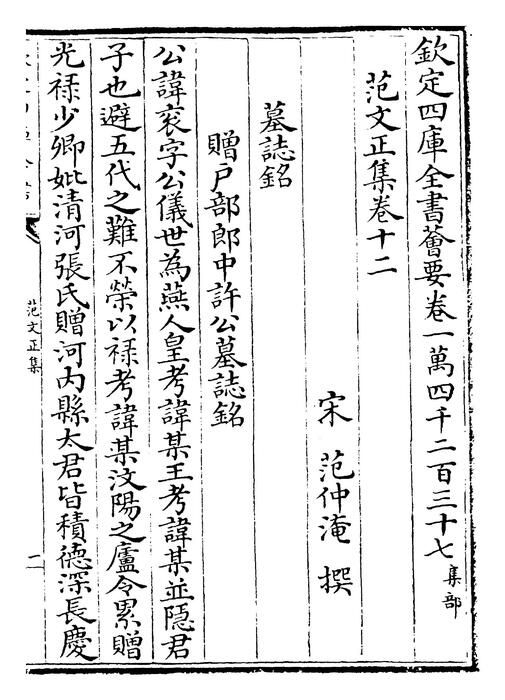 欽定四庫全書薈要卷一萬四千二百三十七集部
范文正集卷十二
宋 范仲淹 撰
墓誌銘
贈戶部郎中許公墓誌銘
公諱衮字公儀世為燕人皇考諱某王考諱某並隱君
子也避五代之難不榮以祿考諱某汶陽之廬令累贈
光祿少卿妣清河張氏贈河內縣太君皆積德深長慶
范文正集